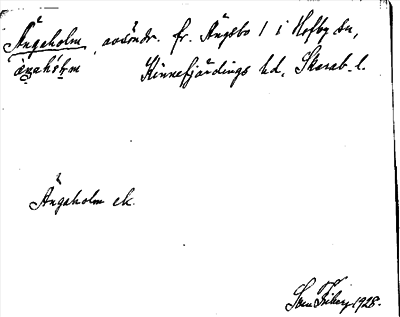 Ängaholm, avsöndr. fr. Ängsbo 1 i Holby sn,
Kinnefjärdings hd, Skarab. l.
Ängaholm ek.
Sven Friberg 1928.